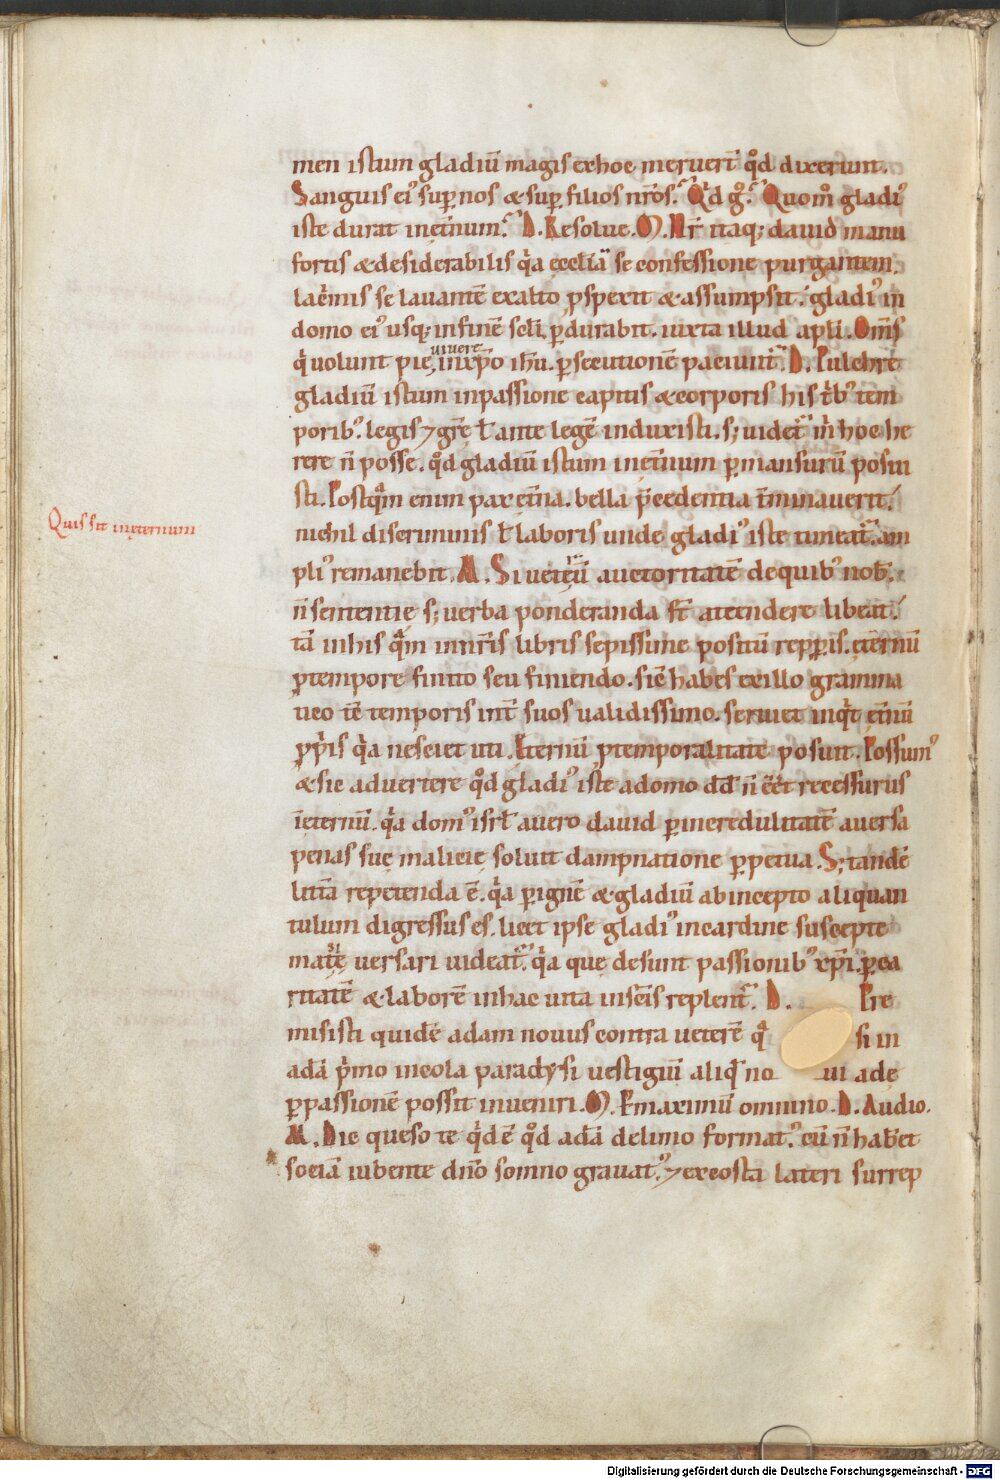 men istum gladiū magis exhoc meruer̄t q̊d dixerunt.
Sanguis ei᾽ sup̱ nos & sup̱ filios nr̄os. Q̇d g̊. Quom̊ gladi᾽
iste durat inęt̄num. D. Resolue. M. Nr̄ itaq; dauid manu
fortis & desiderabilis q̇a ęccl̄iā se confessione purgantem,
lac̄mis se lauantē exalto p̱spexit & assumpsit. gladi᾽ in
domo ei᾽ usq; infinē scl̄i p̱durabit. iuxta illud apl̄i. Om̄s
q̇ uolunt pie uiuere inxp̄o ih̄u. p̱secutionē paciunt᾽. D. Pulchre
gladiū istum inpassione capitis & corporis his t̄b᾽ tem
porib᾽. legis ⁊ gr̄ę ł ante legē induxisti. s; uidet᾽ m̄ hoc he
rere n̄ posse. q̊d gladiū istum inęt̄num p̱mansurū posui
sti. Postq̄m enim pax et̄na. bella p̄cedentia t̄minauerit.
nichil discriminis ł laboris unde gladi᾽ iste timeat᾽ am
pli᾽ remanebit. M. Si uetęrū auctoritatē dequib᾽ nob̄.
n̄ sententię s; verba ponderanda st̄ attendere libeat.
tā inhis q̄m innr̄is libris sepissime positū repp̱is. ęt̄ernū
p̱tempore finito seu finiendo. sic̄ habes exillo gramma
tico tē temporis int̄ suos ualidissimo. seruiet inq̇t et̄nū
pp̱ris q̇a nesciet uti. Eternū p̱temporalitate posuit. Possum᾽
& sic aduertere q̊d gladi᾽ iste adomo dd̄ n̄ ēet recessurus
īeternū. q̇a dom᾽ isrł auero dauid p̱incredulitatē auersa
penas suę malicię soluit dampnatione p̱petua. S; tandē
litt̄a repetenda ē. q̇a p̱ignē & gladiū abincepto aliquan
tulum digressus es. licet ipse gladi᾽ incardine suscepte
mat̄ię uersari uideat᾽. q̇a quę desunt passionib᾽ xp̄i. p̱ca
ritatē & laborē inhac uita insc̄is replent᾽. D. Pre
misisti quidē adam nouus contra ueterē q̇ si in
adā p̄mo incola paradysi uestigiū aliq̇ no ui adę
p̱passionē possit inueniri. M. Et maximū omnino. D. Audio.
M. Dic queso te q̇d ē q̊d adā delimo format᾽. cū n̄ hab̄et
sociā iubente dn̄o somno grauat᾽. ⁊ excosta lateri surrep
Quis sit inęternum
Digitalisierung gefördert durch die Deutsche Forschungsgemeinschaft - DFG